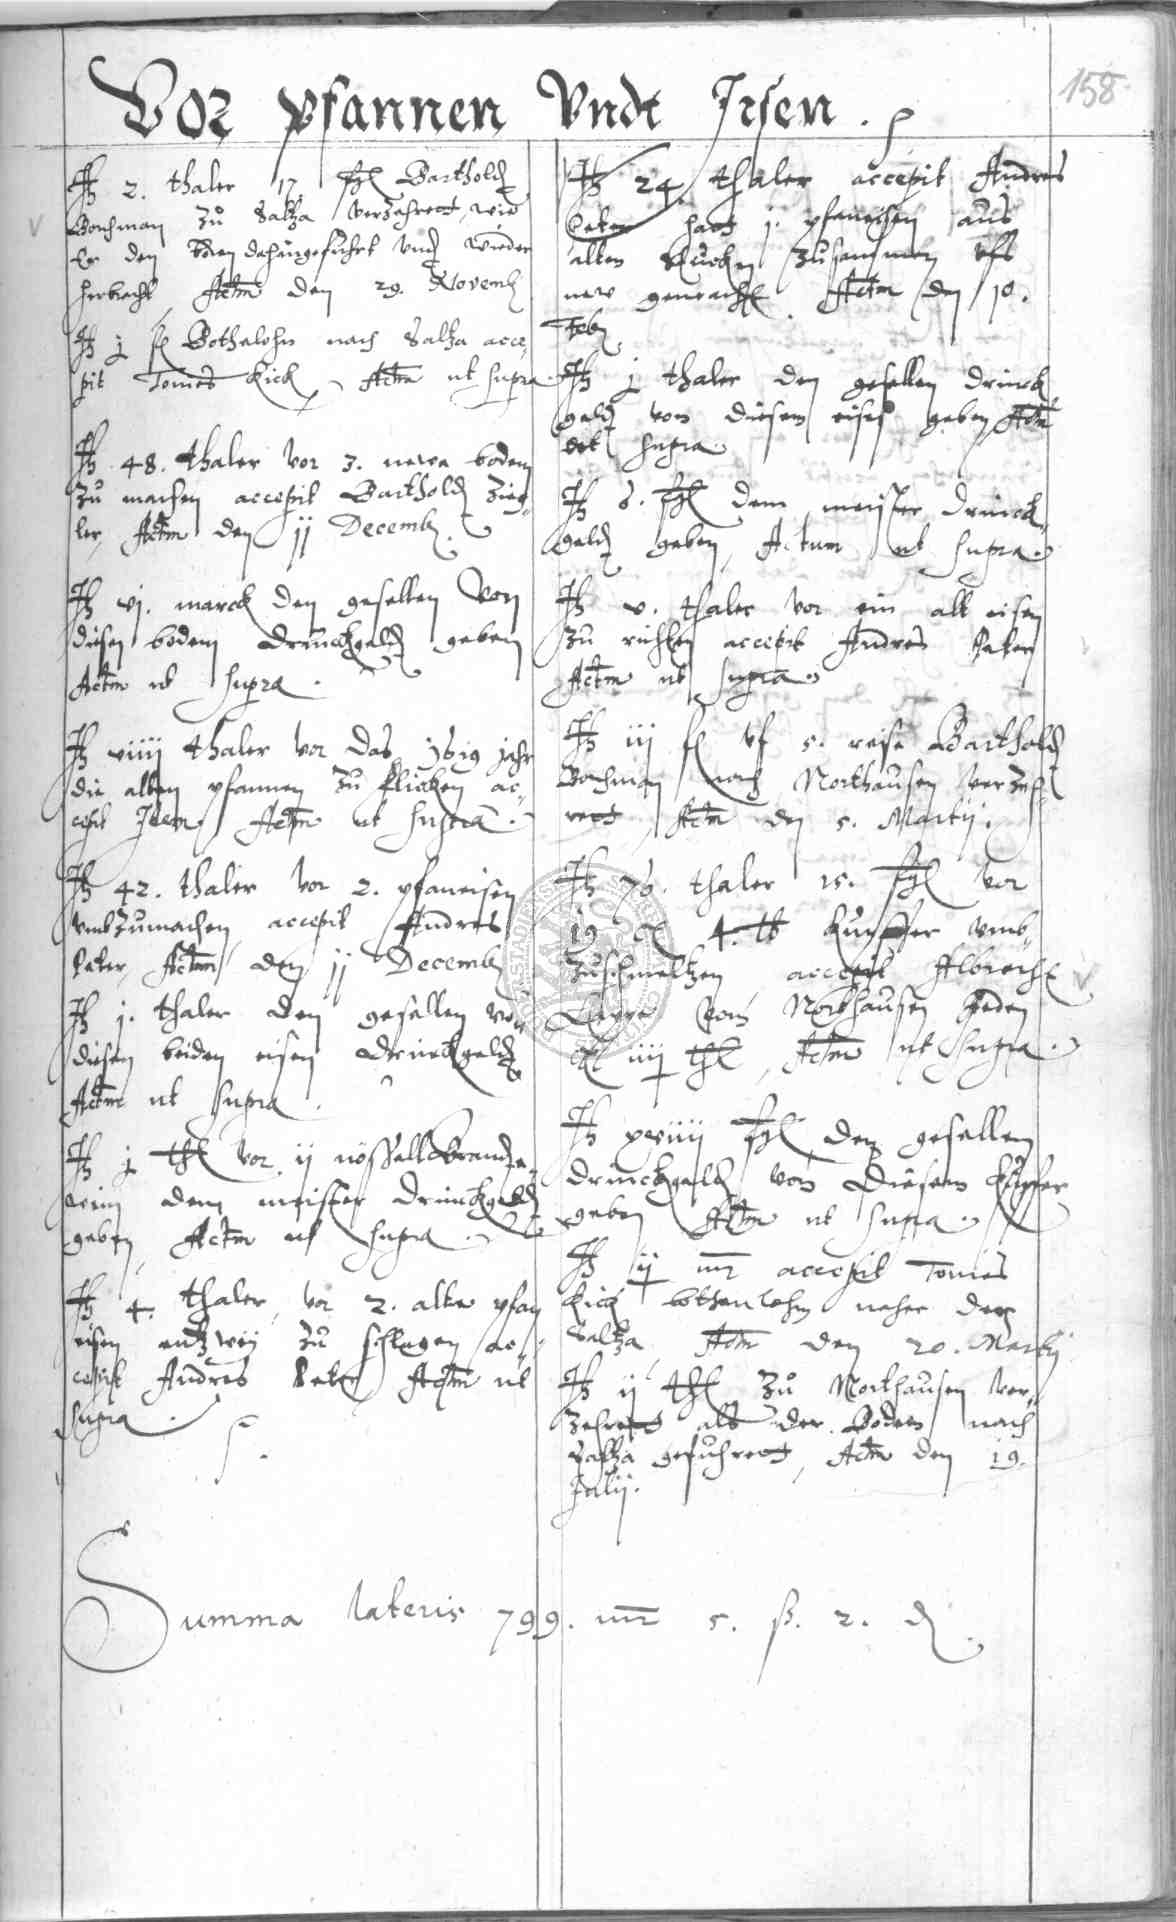 158.
Vor pfannen Undt Irsen.
It 2. thaler 17 ßgl Bartholdt
Bochman zu Saltza verzehrert, wie
Er den boden dahingefuhrt undt wieder
herbracht, Actm den 29. Novemb
It j fl Bothelohn nach Saltza acce-
pit Tomes Kick, Actm ut supra
It 48. thaler vor 3. newe bodem
zu machen accepit Bartholdt Zieg-
ler, Actm den jj Decemb.
It vj. marck den gesellen von
diesen bodem drinckgeldt geben
Actm ut supra.
It viiij thaler vor das 1619 jahr
die alten pfannen zu flicken ac-
cepit Idem, Actm ut supra.
It 42. thaler vor 2. pfaneisen
umbzumachen, accepit Andres
Peter, Actm den jj Decemb
It j. thaler den gesellen von
diesen beiden eisen drinckgeldt
Actm ut supra.
It j thl vor ij nössell brandte-
wein dem meister drinckgeldt
geben, Actm ut supra.
It 4. thaler, vor 2. alte pfan
eisen entzwey zu schlagen ac-
cepit Andres Peter Actm ut
supra.
It 24 thaler accepit Andres
Peter hatt j. pfaneisen aus
alten stucken zusammen uffs
new gemacht. Actm den 10.
Feb.
It j thaler den gesellen drinck
geldt von diesem eisen geben, Actm
ut supra.
It 8. ßgl dem meister drinck-
geldt geben, Actum ut supra.
It v. thaler vor ein alt eisen
zu richten accepit Andres Peter
Actm ut supra.
It iij fl uf 5. reise Bartholdt
Bochman nach Northausen verzeh-
rert, Actm den 5. Martij.
It 76. thaler 15. ßgl vor
19 C 4. lb kupffer umb-
zuschmeltzen accepit Albrecht
von Northausen Jeden
C iiij thl, Actm ut supra.
It xviiij ßgl den gesellen
drinckgeldt von diesem kupfer
geben Actm ut supra.
It ij mr accepit Tomes
Kick bothenlohn naher der
Saltza, Actm den 20. Martij
It ij thl zu Northausen ver-
zehrert als der Boden nach
Saltza gefuhrert, Actm den 19.
Julij.
Summa lateris 799. mr 5. ß. 2. d.